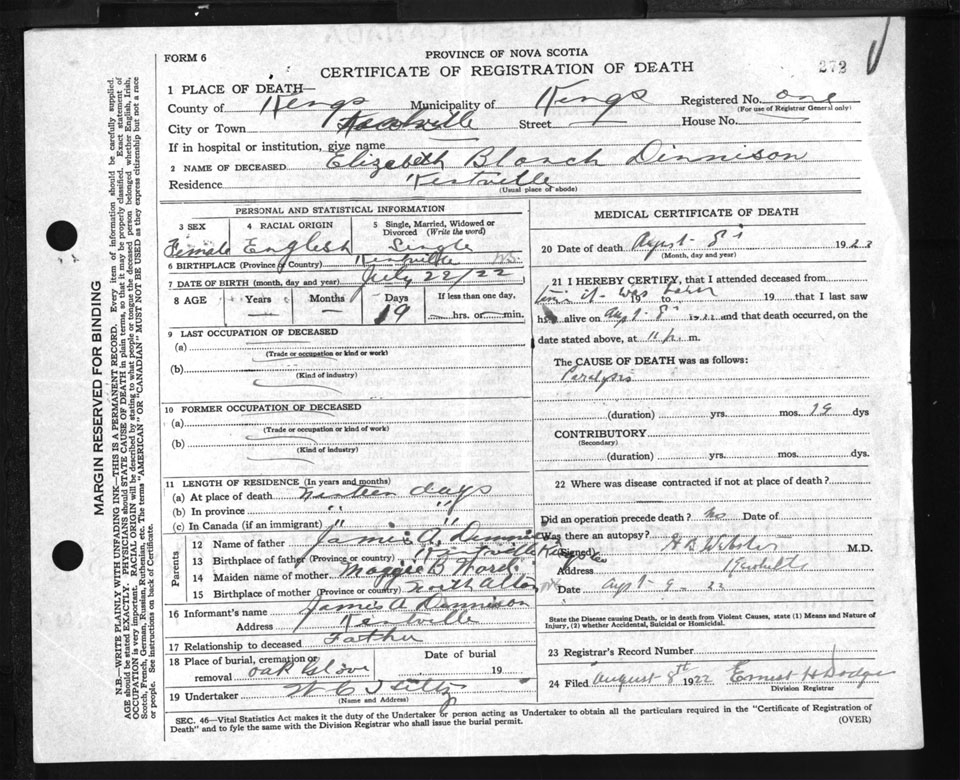 FORM 6
PROVINCE OF NOVA SCOTIA
CERTIFICATE OF REGISTRATION OF DEATH
272
1 PLACE OF DEATH—
County of Kings Municipality of Kings Registered No. one
(For use of Registrar General only)
City or Town Kentville Street House No.
If in hospital or institution, give name
2 NAME OF DECEASED Elizabeth Blanch Dinnison
Residence Kentville
(Usual place of abode)
PERSONAL AND STATISTICAL INFORMATION
3 SEX 4 RACIAL ORIGIN 5 Single, Married, Widowed or Divorced (Write the word)
Female English Single
6 BIRTHPLACE (Province or Country) Kentville N.S.
7 DATE OF BIRTH (month, day and year) July 22/22
8 AGE Years Months Days If less than one day,
19 hrs. or min.
9 LAST OCCUPATION OF DECEASED
(a)
(Trade or occupation or kind or work)
(b)
(Kind of industry)
10 FORMER OCCUPATION OF DECEASED
(a)
(Trade or occupation or kind of work)
(b)
(Kind of industry)
11 LENGTH OF RESIDENCE (In years and months)
(a) At place of death ninteen days
(b) In province " "
(c) In Canada (if an immigrant) " "
Parents
12 Name of father James A.
13 Birthplace of father (Province or country) Kentville
14 Maiden name of mother Maggie B Ward
15 Birthplace of mother (Province or country) North Alton
16 Informant's name James A Dennison
Address Kentville
17 Relationship to deceased Father
18 Place of burial, cremation or removal Oak Grove
Date of burial 19
19 Undertaker W C
(Name and Address)
MEDICAL CERTIFICATE OF DEATH
20 Date of death August 8 192
(Month, day and year)
21 I HEREBY CERTIFY, that I attended deceased from
time it was born 19 to 19 that I last saw
h alive on Augt 8 1922 and that death occurred, on the
date stated above, at 11 p. m.
The CAUSE OF DEATH was as follows:
Paralysis
(duration) yrs. mos. 19 dys
CONTRIBUTORY
(Secondary)
(duration) yrs. mos. dys.
22 Where was disease contracted if not at place of death?
Did an operation precede death? No Date of
Was there an autopsy?
Signed Webster M.D.
Address Kentville
Date Augt 9 22
State the Disease causing Death, or in death from Violent Causes, state (1) Means and Nature of Injury, (2) whether Accidental, Suicidal or Homicidal.
23 Registrar's Record Number
24 Filed August 8th 1922 Ernest H Dodge
Division Registrar
SEC. 46—Vital Statistics Act makes it the duty of the Undertaker or person acting as Undertaker to obtain all the particulars required in the "Certificate of Registration of
Death" and to fyle the same with the Division Registrar who shall issue the burial permit. (OVER)
MARGIN RESERVED FOR BINDING
N.B.—WRITE PLAINLY WITH UNFADING INK—THIS IS A PERMANENT RECORD. Every item of information should be carefully supplied.
AGE should be stated EXACTLY. PHYSICIANS should STATE CAUSE OF DEATH in plain terms, so that it may be properly classified. Exact statement of
OCCUPATION is very important. RACIAL ORIGIN will be described by stating to what people or tongue the deceased person belonged whether English, Irish,
Scotch, French, German, Russian, Ruthenian, etc. The terms "AMERICAN" OR "CANADIAN" MUST NOT BE USED as they express citizenship but not a race
or people. See instructions on back of Certificate.